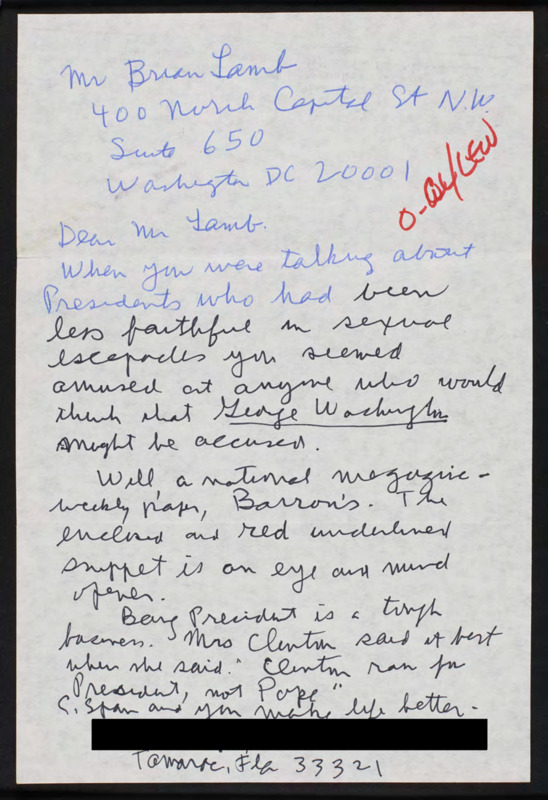 Mr Brian Lamb
400 North Capital St N.W.
Suite 650
Washington DC 20001
Dear Mr Lamb.
When you were talking about
Presidents who had been
less faithful in sexual
escapades you seemed
amused at anyone who would
think that George Washington
might be accused.
Well, a national magazine-
weekly paper, Barron's. The
enclosed and red underlined
snippet is an eye and mind
opener.
Being President is a tough
business. Mrs Clinton said it best
when she said "Clinton ran for
President, not Pope"
C. Span and you make life better.
Tamarac, Fla 33321